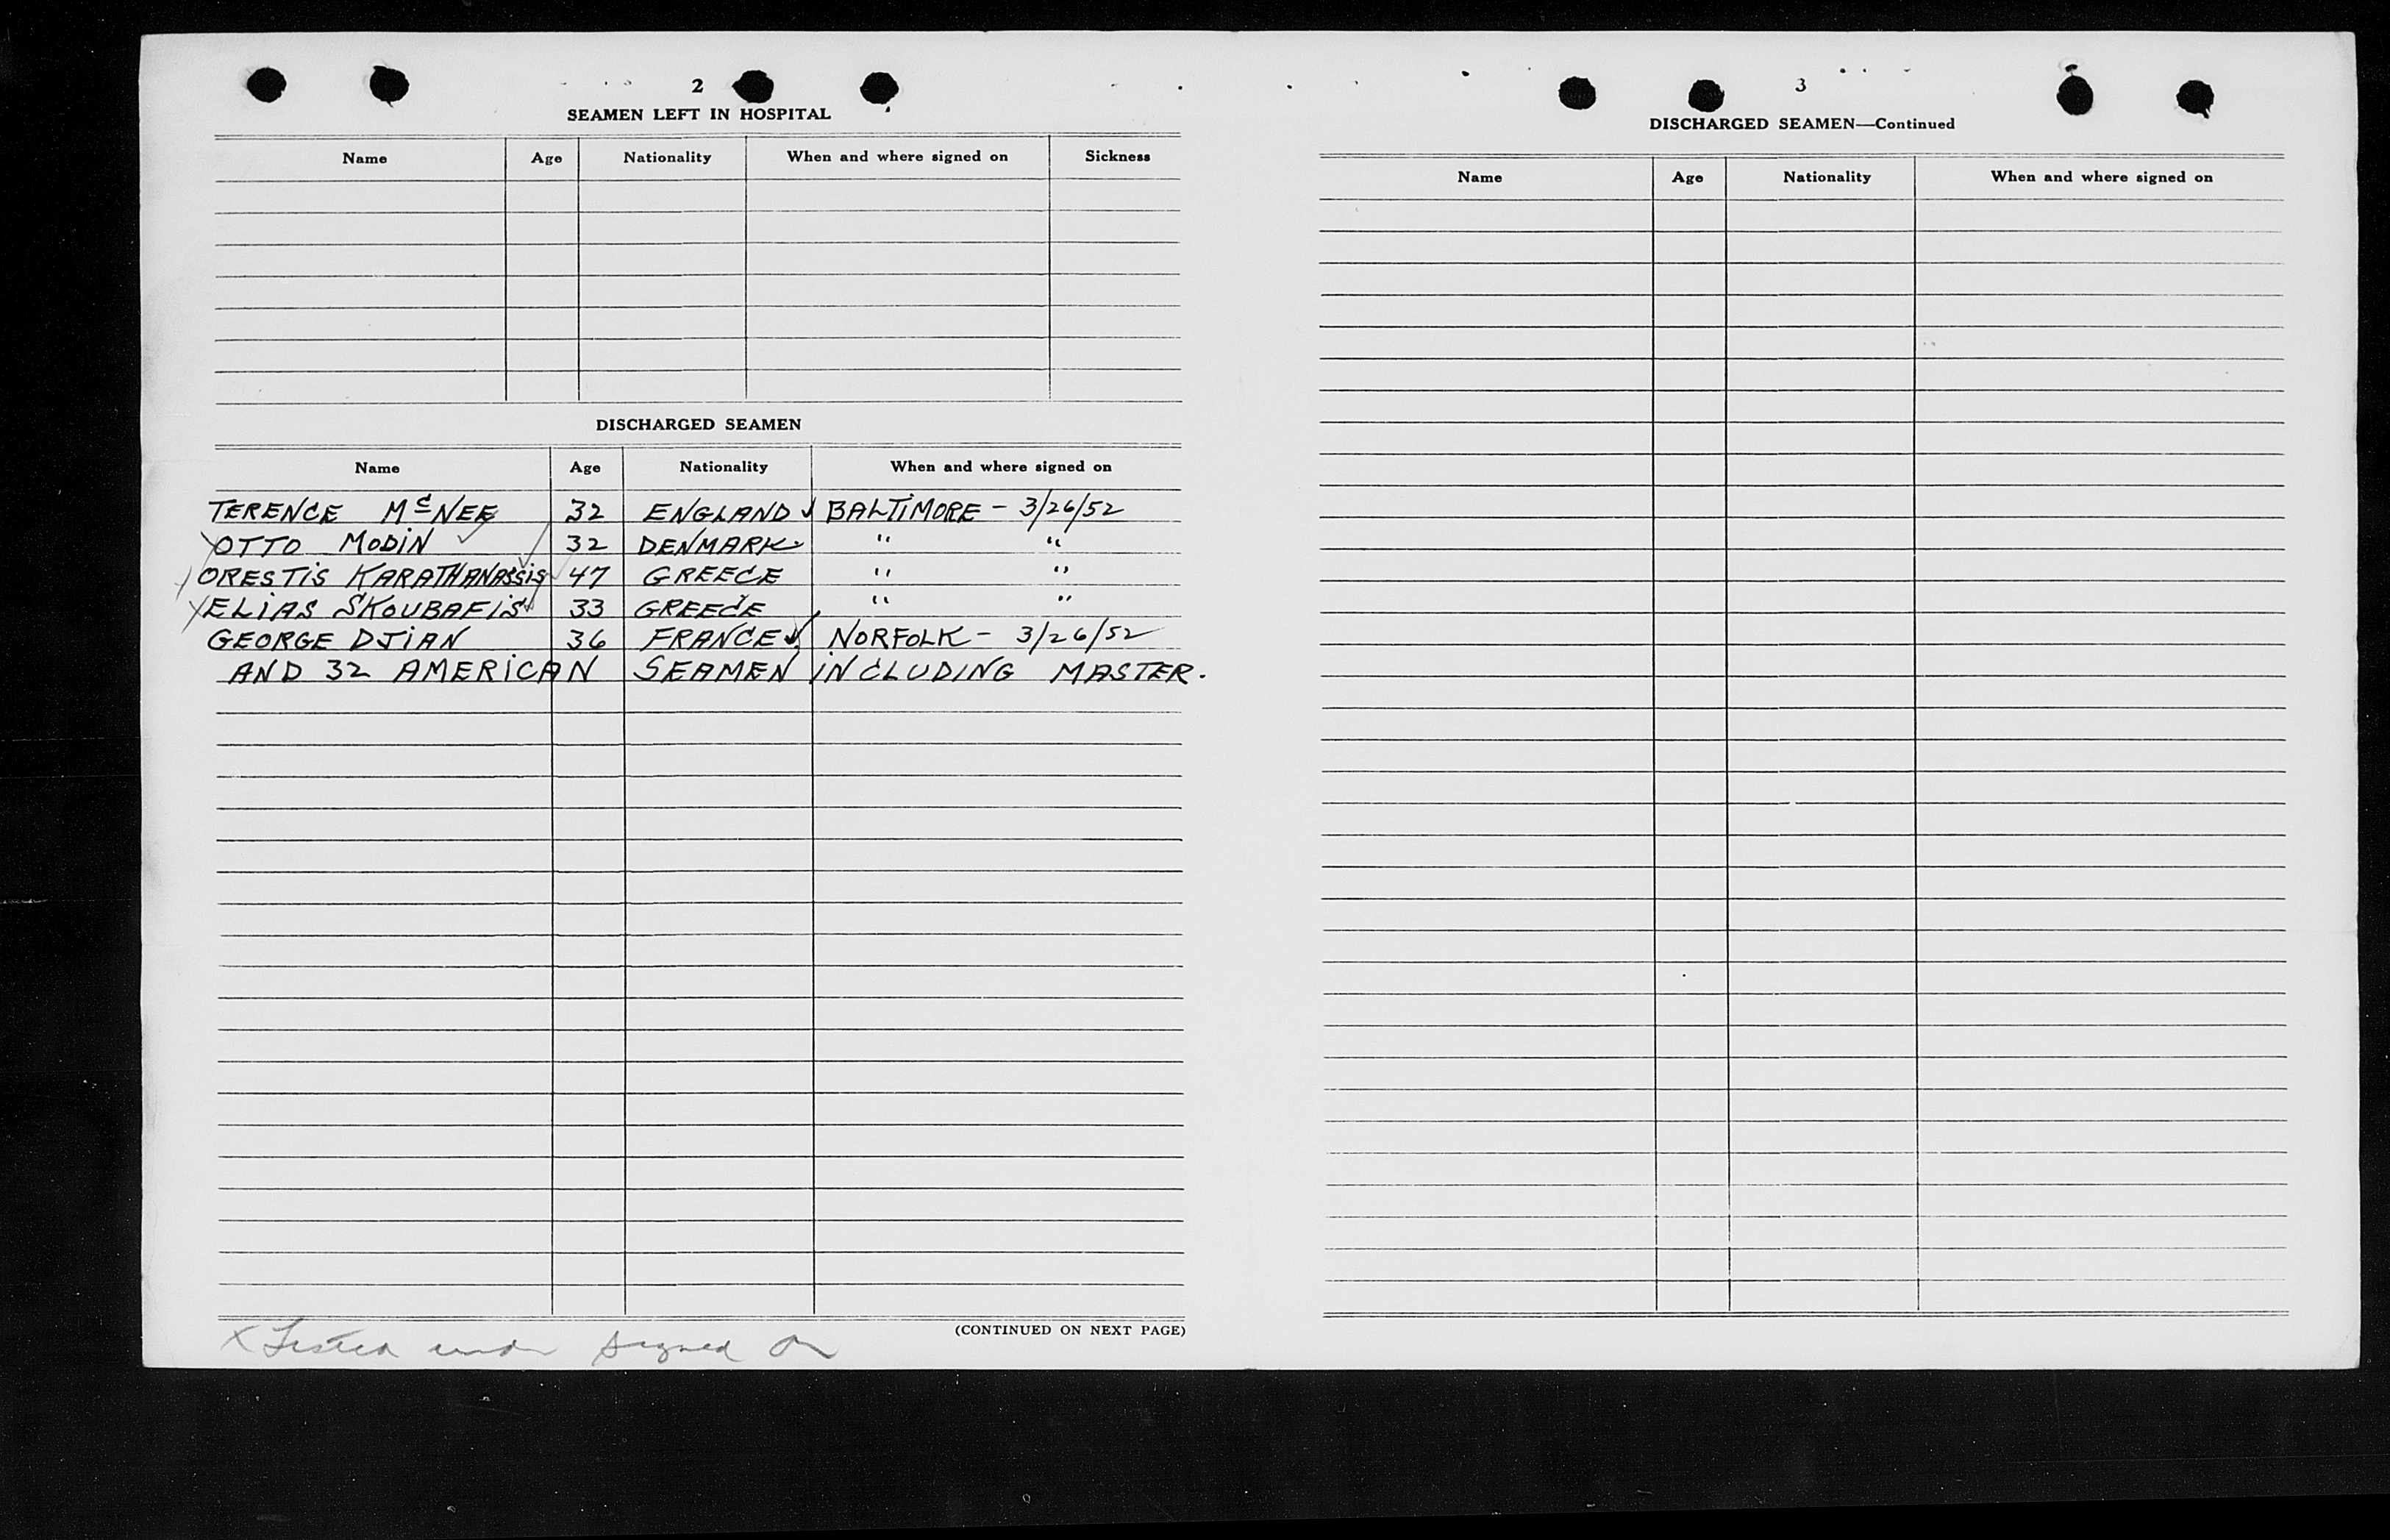 2
SEAMEN LEFT IN HOSPITAL
Name Age Nationality When and where signed on Sickness
DISCHARGED SEAMEN
Name Age Nationality When and where signed on
TERENCE McNEE 32 ENGLAND ✓ BALTIMORE - 3/26/52
X OTTO MODIN ✓ 32 DENMARK " "
X ORESTIS KARATHANASSIS ✓ 47 GREECE " "
X ELIAS SKOUBAFIS ✓ 33 GREECE " "
GEORGE DJIAN 36 FRANCE ✓ NORFOLK - 3/26/52
AND 32 AMERICAN SEAMEN INCLUDING MASTER.
(CONTINUED ON NEXT PAGE)
X Listed under signed on
3
DISCHARGED SEAMEN—Continued
Name Age Nationality When and where signed on